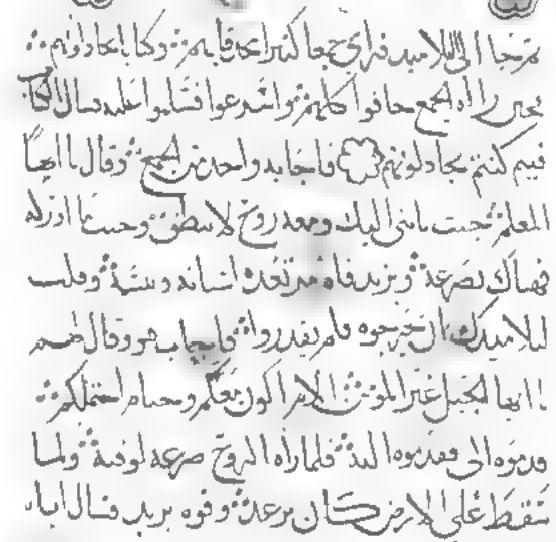 ثم جا الى التلاميد فراي جمعا كثيرا محدقا بهم وكتابا يجادلونهم
فحين راه الجمع خافوا كلهم واسرعوا فسلموا عليه فسال الكتاب
فيم كنتم تجادلونهم فاجابه واحد من الجمع وقال يا ايها
المعلم جيت بابني اليك ومعه روح لا ينطق وحيث ما ادركه
فهناك يصرعه ويزبد فاه اسنانه ويبسه وقلت
لتلاميدك ان يخرجوه فلم يقدروا فاجاب هو وقال لهم
يا ايها الجيل غير المومن اكون معكم وحتام احتملكم
قدموه الي فقدموه اليه فلما راه الروح صرعه لوقته ولما
سقط على الارض كان يرعد وفوه يزبد فسال اباه